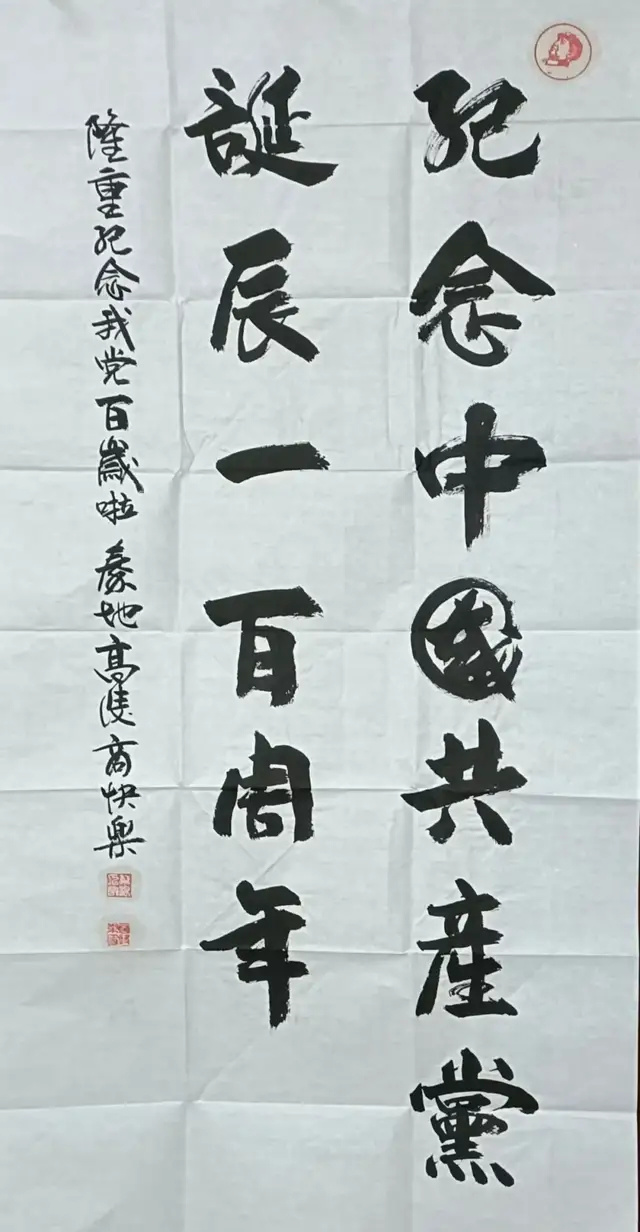 紀念中國共產黨
誕辰一百周年
隆重纪念我党百歲啦 秦地高陵商快樂